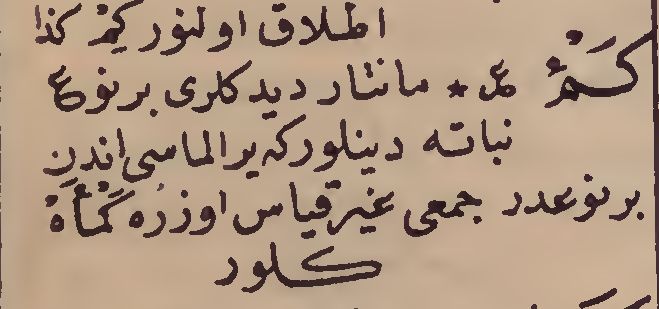 اطلاق اولنور كيمْ كذا
كَمْءْ ع * مانتار ديدكلرى برنوع
نباته دينلور كه ير الماسى اندن
برنوعدر جمعى غيرقياس اوزره كَمْأَةْ
كلور